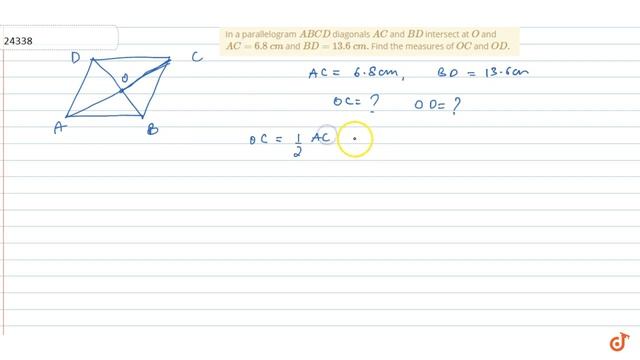 24338
In a parallelogram ABCD diagonals AC and BD intersect at O and
AC = 6.8 cm and BD = 13.6 cm. Find the measures of OC and OD.
D C
O
A B
AC = 6.8cm, BD = 13.6cm
OC = ? OD = ?
OC = 1/2 AC